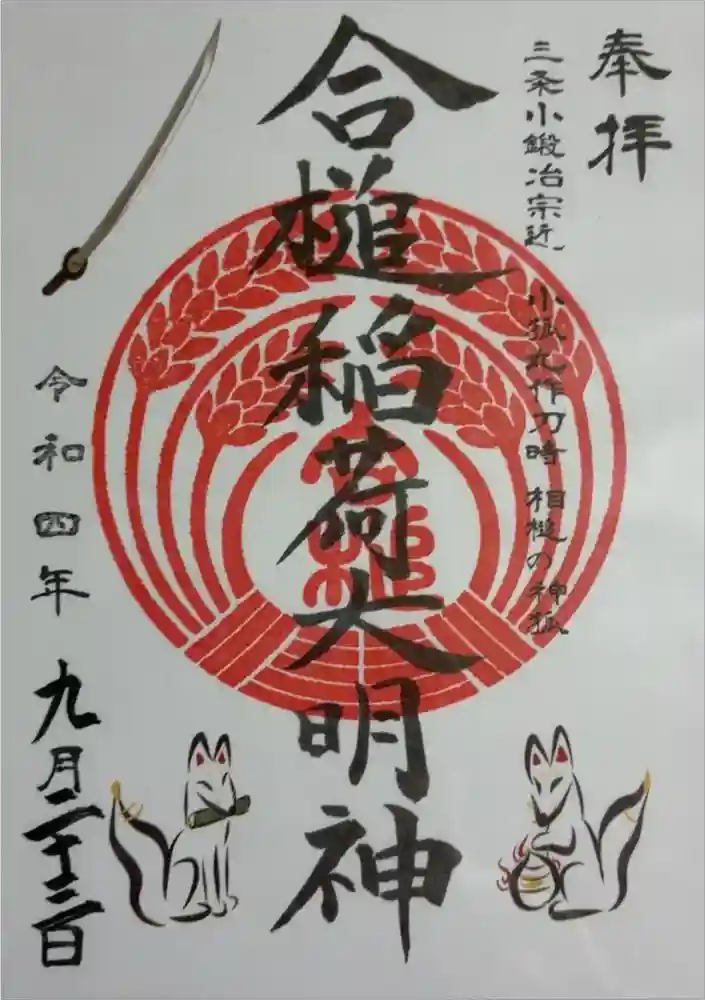 奉拝
三条小鍛冶宗近
小狐丸作刀時
相槌の神狐
合槌稲荷大明神
令和四年
九月二十三日